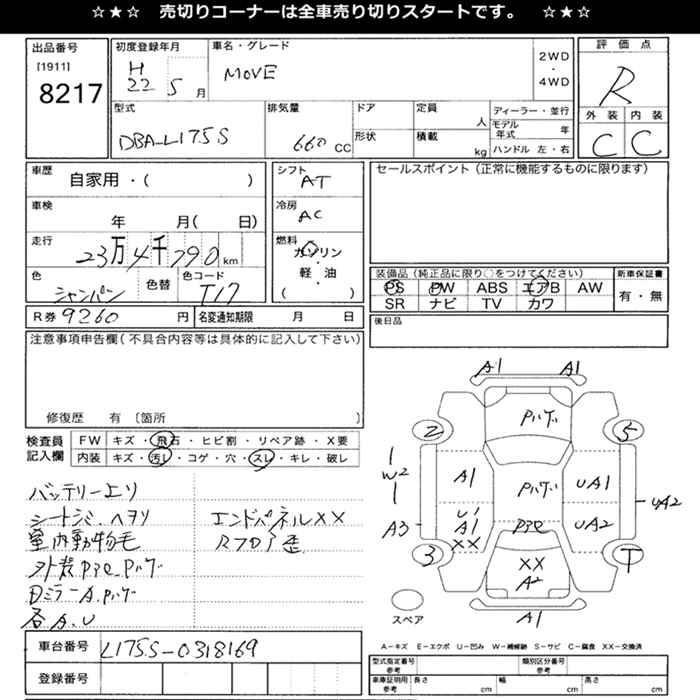 ☆★☆ 売切りコーナーは全車売り切りスタートです。 ☆★☆
出品番号
[1911]
8217
初度登録年月
H
22 5 月
車名・グレード
MOVE
2WD
・
4WD
評価点
R
外装 内装
C C
型式
DBA-L175S
排気量
660 CC
ドア
形状
定員
人
積載
kg
ディーラー・並行
モデル年式 年
ハンドル 左・右
車歴
自家用・( )
シフト
AT
セールスポイント (正常に機能するものに限ります)
車検
年 月( 日)
冷房
AC
走行
23万4千790 km
燃料
ガソリン
・
軽・油
( )
色
シャンパン
色替
色コード
T17
装備品 (純正品に限り○をつけてください)
PS PW ABS エアB AW
SR ナビ TV カワ
新車保証書
有・無
R券 9260 円
名変通知期限 月 日
後日品
注意事項申告欄(不具合内容等は具体的に記入して下さい)
修復歴 有 〔箇所 〕
検査員
記入欄
FW キズ・飛石・ヒビ割・リペア跡・X要
内装 キズ・汚レ・コゲ・穴・スレ・キレ・破レ
バッテリー上リ
シートシミ、ヘタリ
室内動物毛
外装PPE、Pハゲ
Dミラー A、Pハゲ
各A、U
エンドパネルXX
Rフロア歪
A1 A1
Pハゲ
2 5
1
W2
1
A1
Pハゲ
UA1
UA2
A3
U1
A1
XX
PPE
UA2
3 T
XX
A2
スペア
A1
A-キズ E-エクボ U-凹み W-補修跡 S-サビ C-腐食 XX-交換済
車台番号
L175S-0318169
登録番号
型式指定番号
参考
類別区分番号
参考
車庫証明用
参考
長さ cm
幅 cm
高さ cm